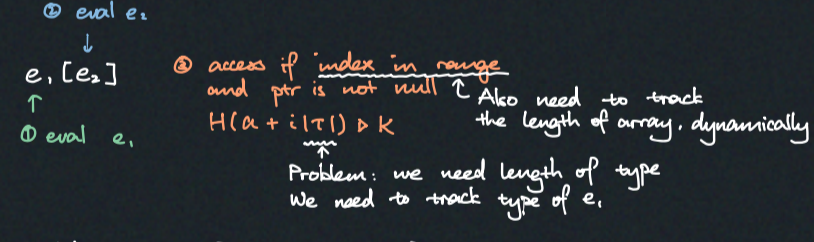 ② eval e₂
↓
e₁[e₂]
↑
① eval e₁
③ access if index in range
and ptr is not null
H(a + i|τ|) ▷ K
↑ Also need to track
the length of array. dynamically
↑
Problem: we need length of type
We need to track type of e₁